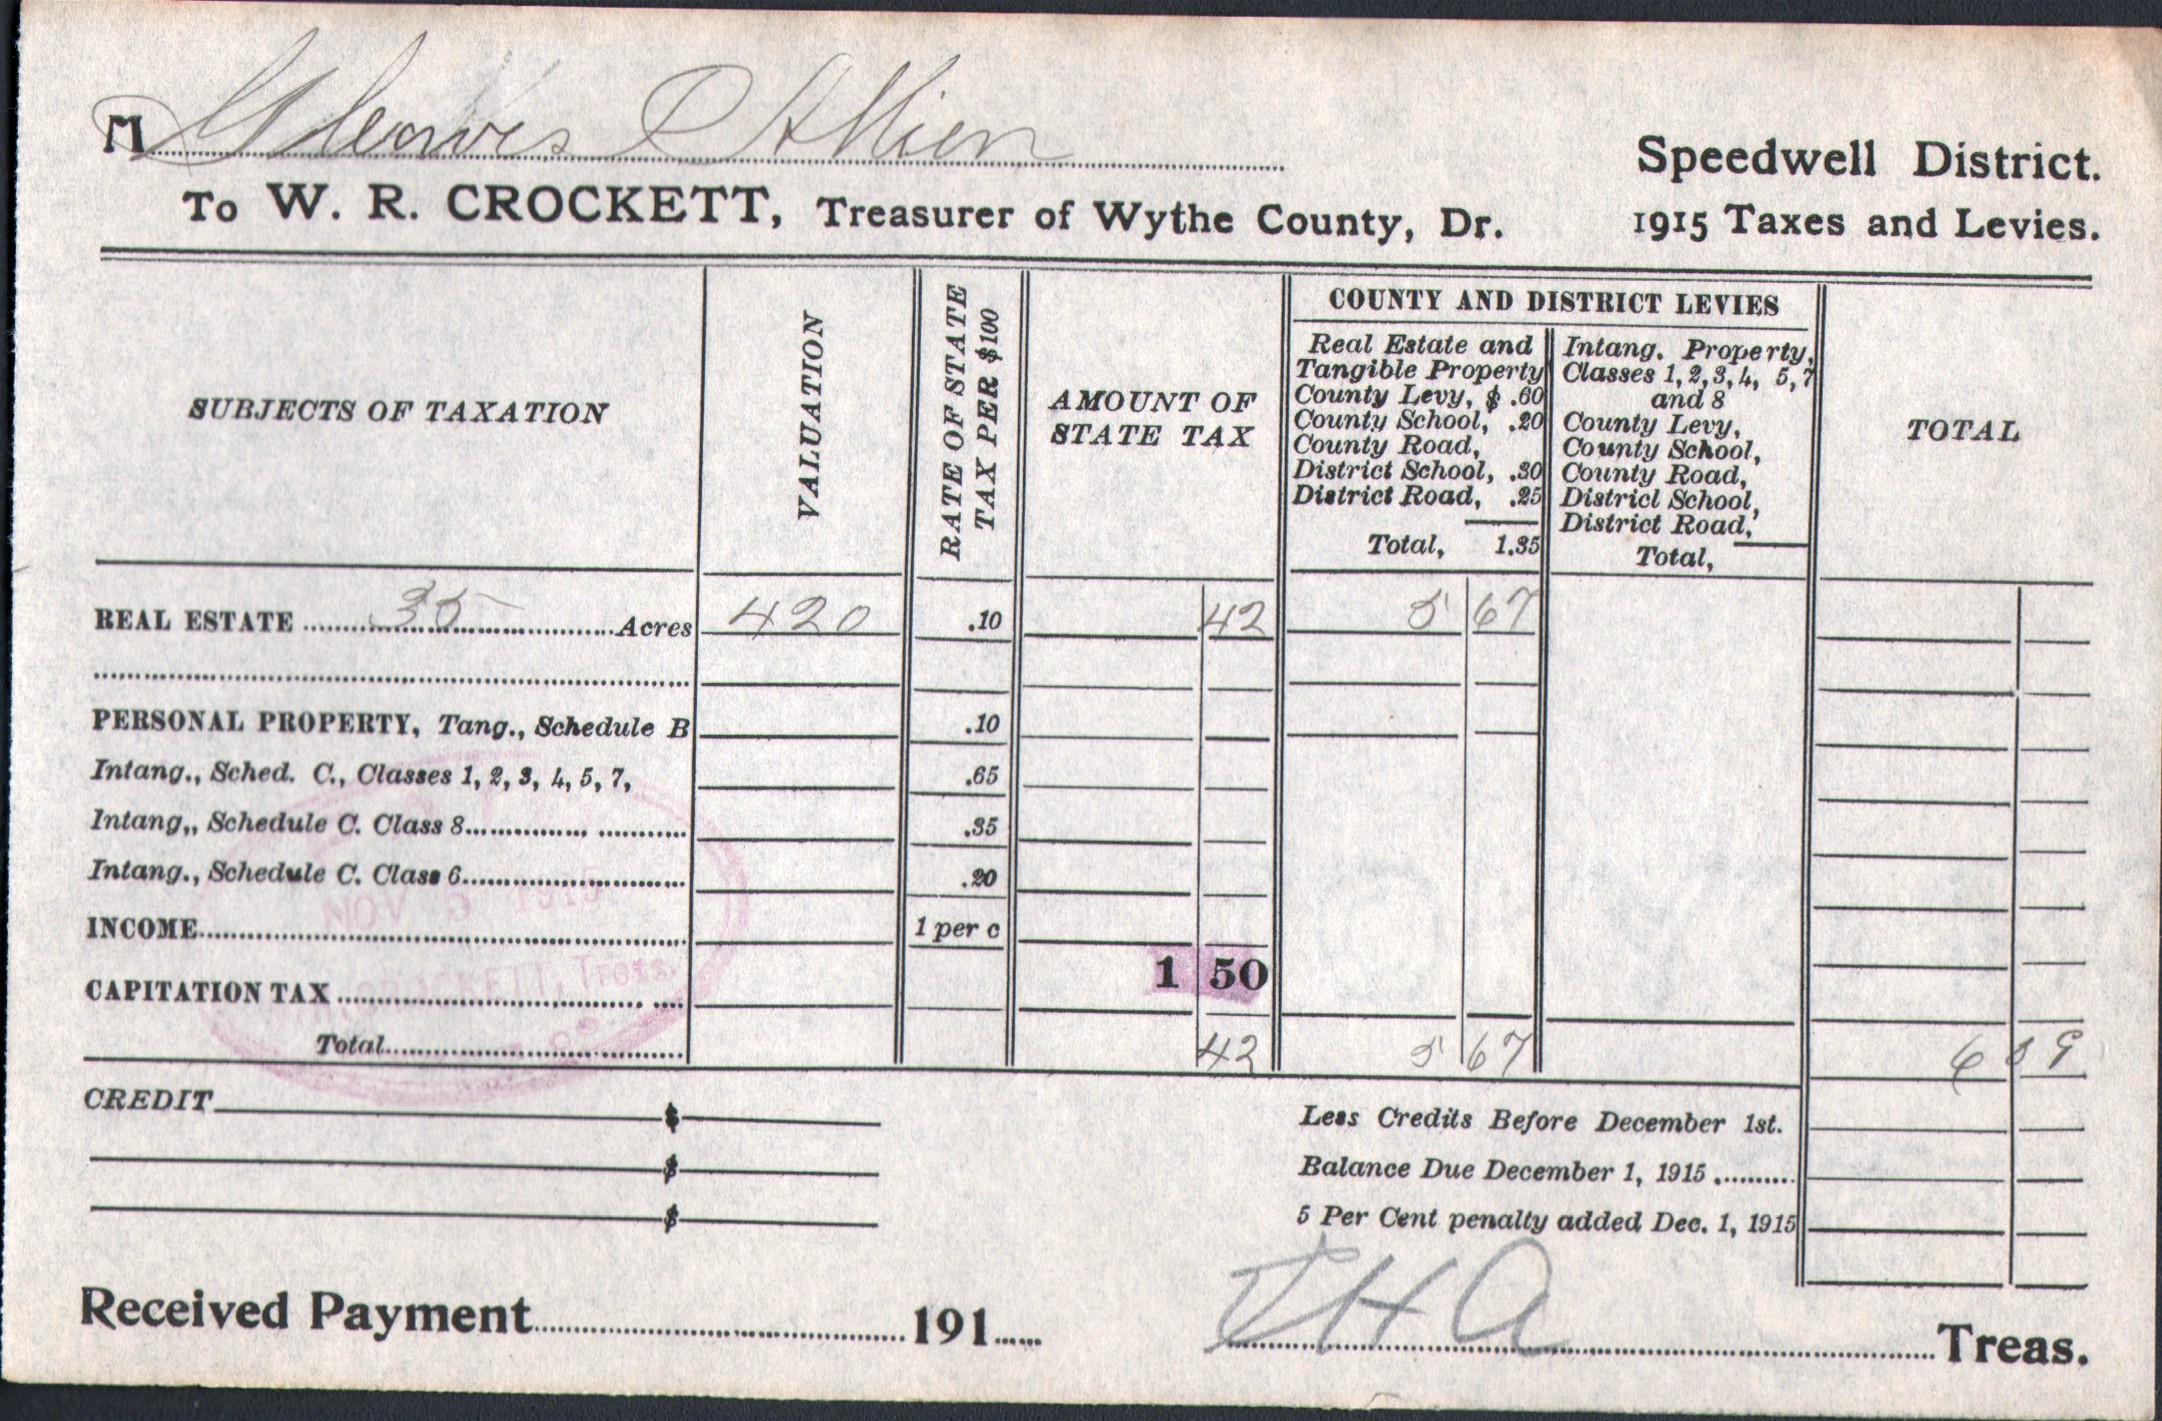 M Gleaves & Allien
Speedwell District.
To W. R. CROCKETT, Treasurer of Wythe County, Dr.
1915 Taxes and Levies.
SUBJECTS OF TAXATION
VALUATION
RATE OF STATE
TAX PER $100
AMOUNT OF
STATE TAX
COUNTY AND DISTRICT LEVIES
Real Estate and
Tangible Property
County Levy, $ .60
County School, .20
County Road,
District School, .30
District Road, .25
Total, 1.35
Intang. Property,
Classes 1, 2, 3, 4, 5, 7
and 8
County Levy,
County School,
County Road,
District School,
District Road,
Total,
TOTAL
REAL ESTATE 35 Acres 420 .10 42 5 67
PERSONAL PROPERTY, Tang., Schedule B .10
Intang., Sched. C., Classes 1, 2, 3, 4, 5, 7, .65
Intang,, Schedule C. Class 8 .35
Intang., Schedule C. Class 6 .20
NOV 5 1915
INCOME 1 per c
CROCKETT, Treas.
CAPITATION TAX 1 50
Total 42 5 67 6 09
CREDIT $
$
$
Less Credits Before December 1st.
Balance Due December 1, 1915
5 Per Cent penalty added Dec. 1, 1915
Received Payment 191 JHA Treas.